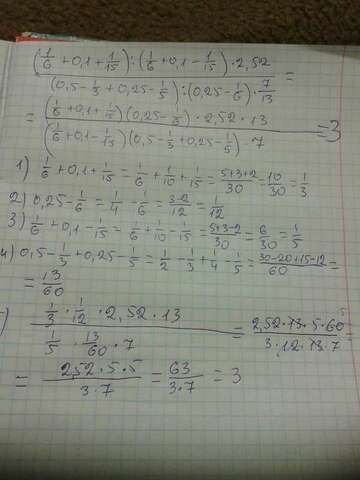 (1/6 + 0,1 + 1/15) : (1/6 + 0,1 - 1/15) · 2,52
/ (0,5 - 1/3 + 0,25 - 1/5) : (0,25 - 1/6) · 7/13 =
= (1/6 + 0,1 + 1/15)(0,25 - 1/6) · 2,52 · 13 / (1/6 + 0,1 - 1/15)(0,5 - 1/3 + 0,25 - 1/5) · 7 = 3
1) 1/6 + 0,1 + 1/15 = 1/6 + 1/10 + 1/15 = 5+3+2/30 = 10/30 = 1/3
2) 0,25 - 1/6 = 1/4 - 1/6 = 3-2/12 = 1/12
3) 1/6 + 0,1 - 1/15 = 1/6 + 1/10 - 1/15 = 5+3-2/30 = 6/30 = 1/5
4) 0,5 - 1/3 + 0,25 - 1/5 = 1/2 - 1/3 + 1/4 - 1/5 = 30-20+15-12/60 =
= 13/60
) 1/3 · 1/12 · 2,52 · 13 / 1/5 · 13/60 · 7 = 2,52 · 13 · 5 · 60 5 / 3 · 12 · 13 · 7 =
= 2,52 · 5 · 5 / 3 · 7 = 63 / 3 · 7 = 3